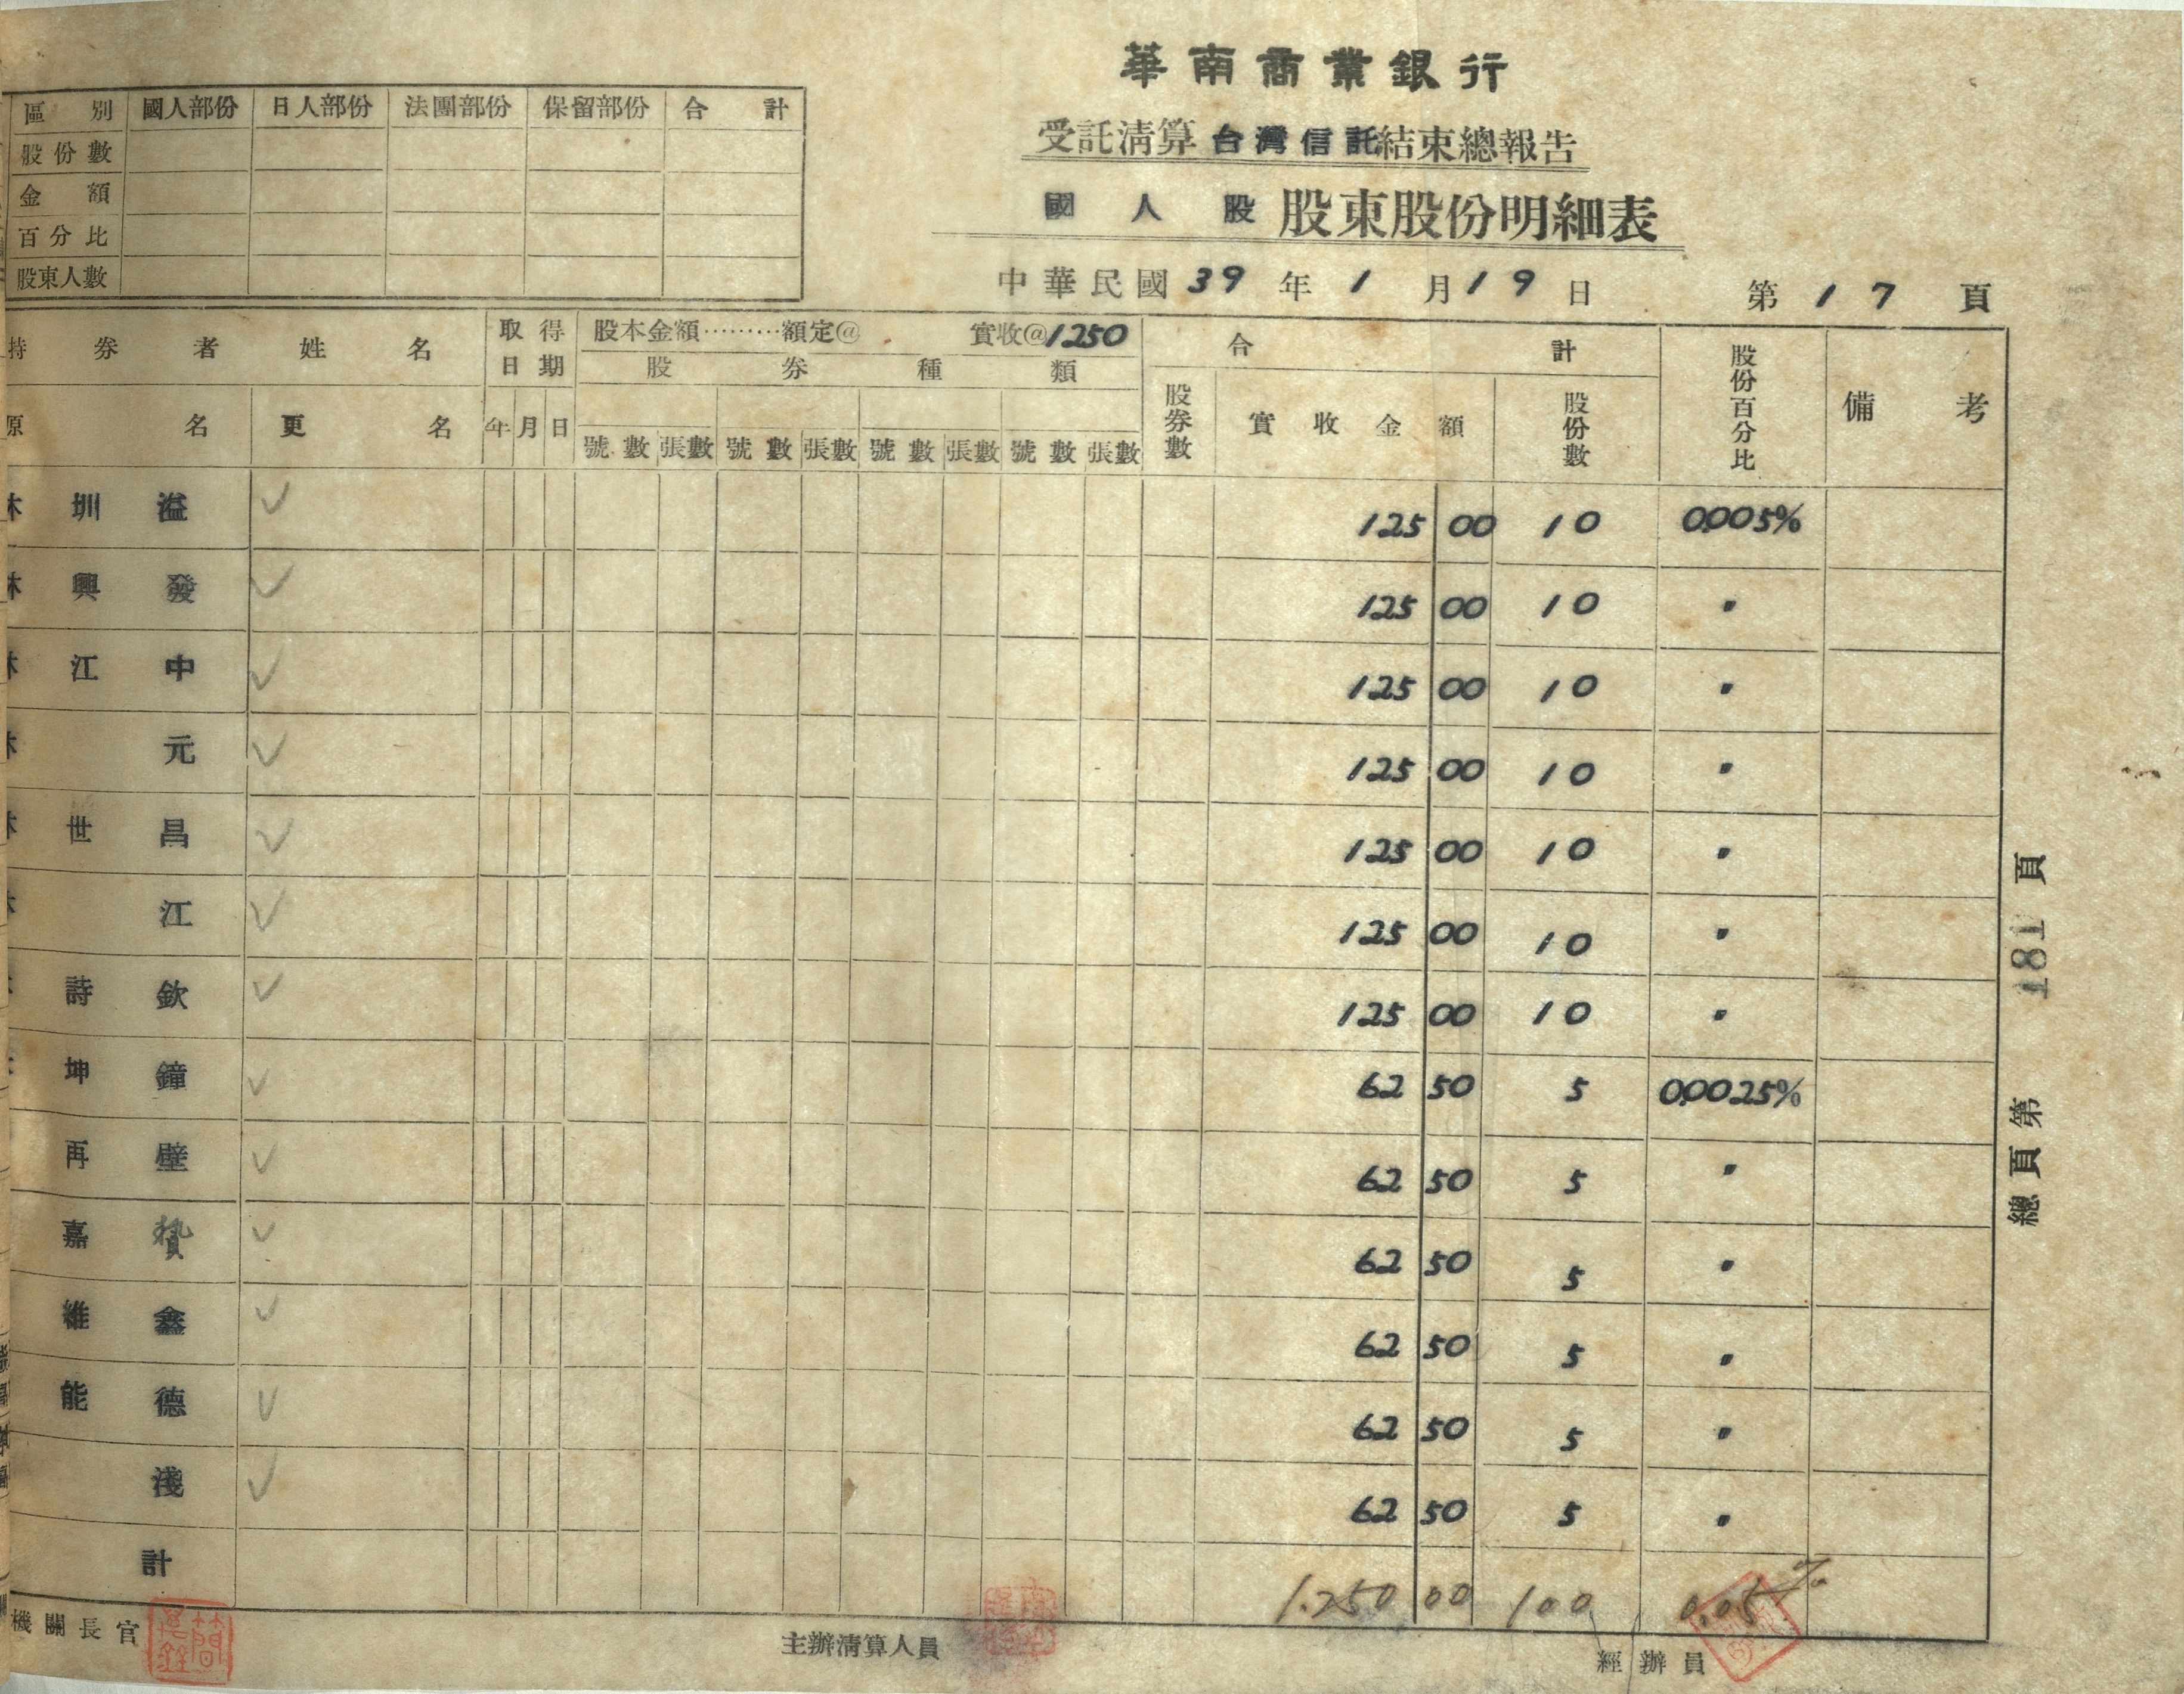 華南商業銀行
受託清算台灣信託結束總報告
國人股 股東股份明細表
中華民國39年1月19日 第17頁
區別 國人部份 日人部份 法團部份 保留部份 合計
股份數
金額
百分比
股東人數
持券者姓名 取得日期 股本金額………額定@ 實收@1250 合計 股份百分比 備考
股券種類
原名 更名 年 月 日 號數 張數 號數 張數 號數 張數 號數 張數 股券數 實收金額 股份數
林圳溢 ✓ 125 00 10 0.005%
林興發 ✓ 125 00 10 〃
林江中 ✓ 125 00 10 〃
林元 ✓ 125 00 10 〃
林世昌 ✓ 125 00 10 〃
林江 ✓ 125 00 10 〃
詩欽 ✓ 125 00 10 〃
坤鐘 ✓ 62 50 5 0.0025%
再壁 ✓ 62 50 5 〃
嘉贄 ✓ 62 50 5 〃
維鑫 ✓ 62 50 5 〃
能德 ✓ 62 50 5 〃
淺 ✓ 62 50 5 〃
計 1.250 00 100 0.05%
機關長官 主辦清算人員 經辦員
總頁第 181 頁